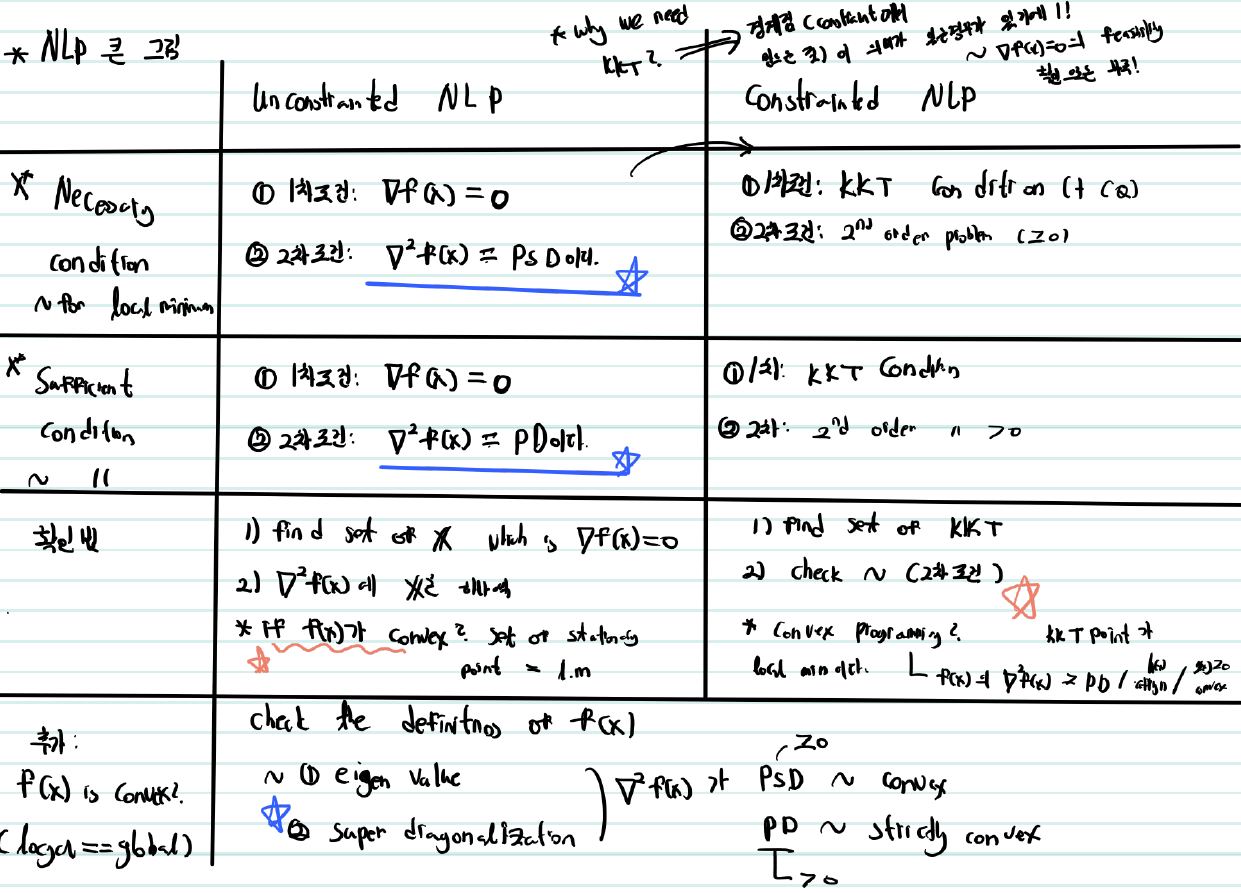 * NLP 큰 그림
* why we need
KKT?
경계점 (constraint에서
~ ∇f(x)=0의 feasibility
Unconstrainted NLP
Constrainted NLP
X* Necessary
condition
~ for local minimum
① 1차조건: ∇f(x) = 0
② 2차조건: ∇²f(x) = PSD이다.
① 1차조건: KKT Condition (+ CQ)
② 2차조건: 2nd order problem (≥0)
X* Sufficient
condition
~ "
① 1차조건: ∇f(x) = 0
② 2차조건: ∇²f(x) = PD이다.
① 1차: KKT Condition
② 2차: 2nd order " >0
확인법
1) find set of X which is ∇f(x)=0
2) ∇²f(x)에 X를
* If f(x)가 convex? set of stationary
point = l.m
1) find set of KKT
2) check ~ (2차조건)
* Convex programing? KKT point가
local min이다. f(x)의 ∇²f(x) ≥ PD / / convex
추가:
f(x) is convex?
(local == global)
check the definitness of f(x)
~ ① eigen value
② super diagonalization
∇²f(x)가 PSD ~ convex
≥0
PD ~ strictly convex
>0